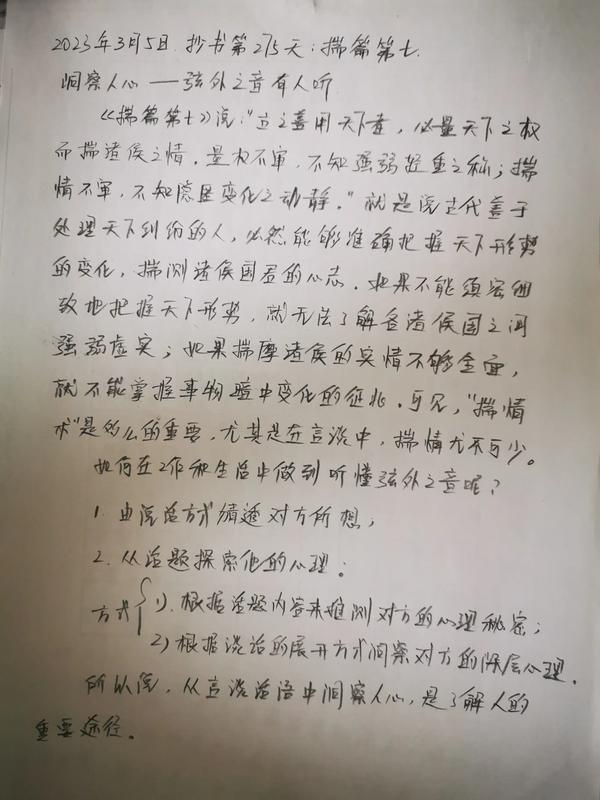 2023年3月5日.抄书第275天:揣篇第七.
洞察人心——弦外之音有人听
《揣篇第七》说:"古之善用天下者,必量天下之权
而揣诸侯之情.量权不审,不知强弱轻重之称;揣
情不审,不知隐匿变化之动静."就是说古代善于
处理天下纠纷的人,必然能够准确把握天下形势
的变化,揣测诸侯国君的心志.如果不能缜密细
致地把握天下形势,就无法了解各诸侯国之间
强弱虚实;如果揣摩诸侯的实情不够全面,
就不能掌握事物暗中变化的征兆.可见,"揣情
术"是多么的重要,尤其是在言谈中,揣情尤不可少。
如何在工作和生活中做到听懂弦外之音呢?
1.由说话方式猜透对方所想;
2.从话题探索他的心理:
方式 1).根据话题内容来推测对方的心理秘密;
2)根据谈话的展开方式洞察对方的深层心理.
所以说,从言谈话语中洞察人心,是了解人的
重要途径。